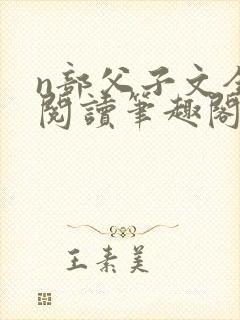 n部父子文全
閱讀筆趣閣
王素美